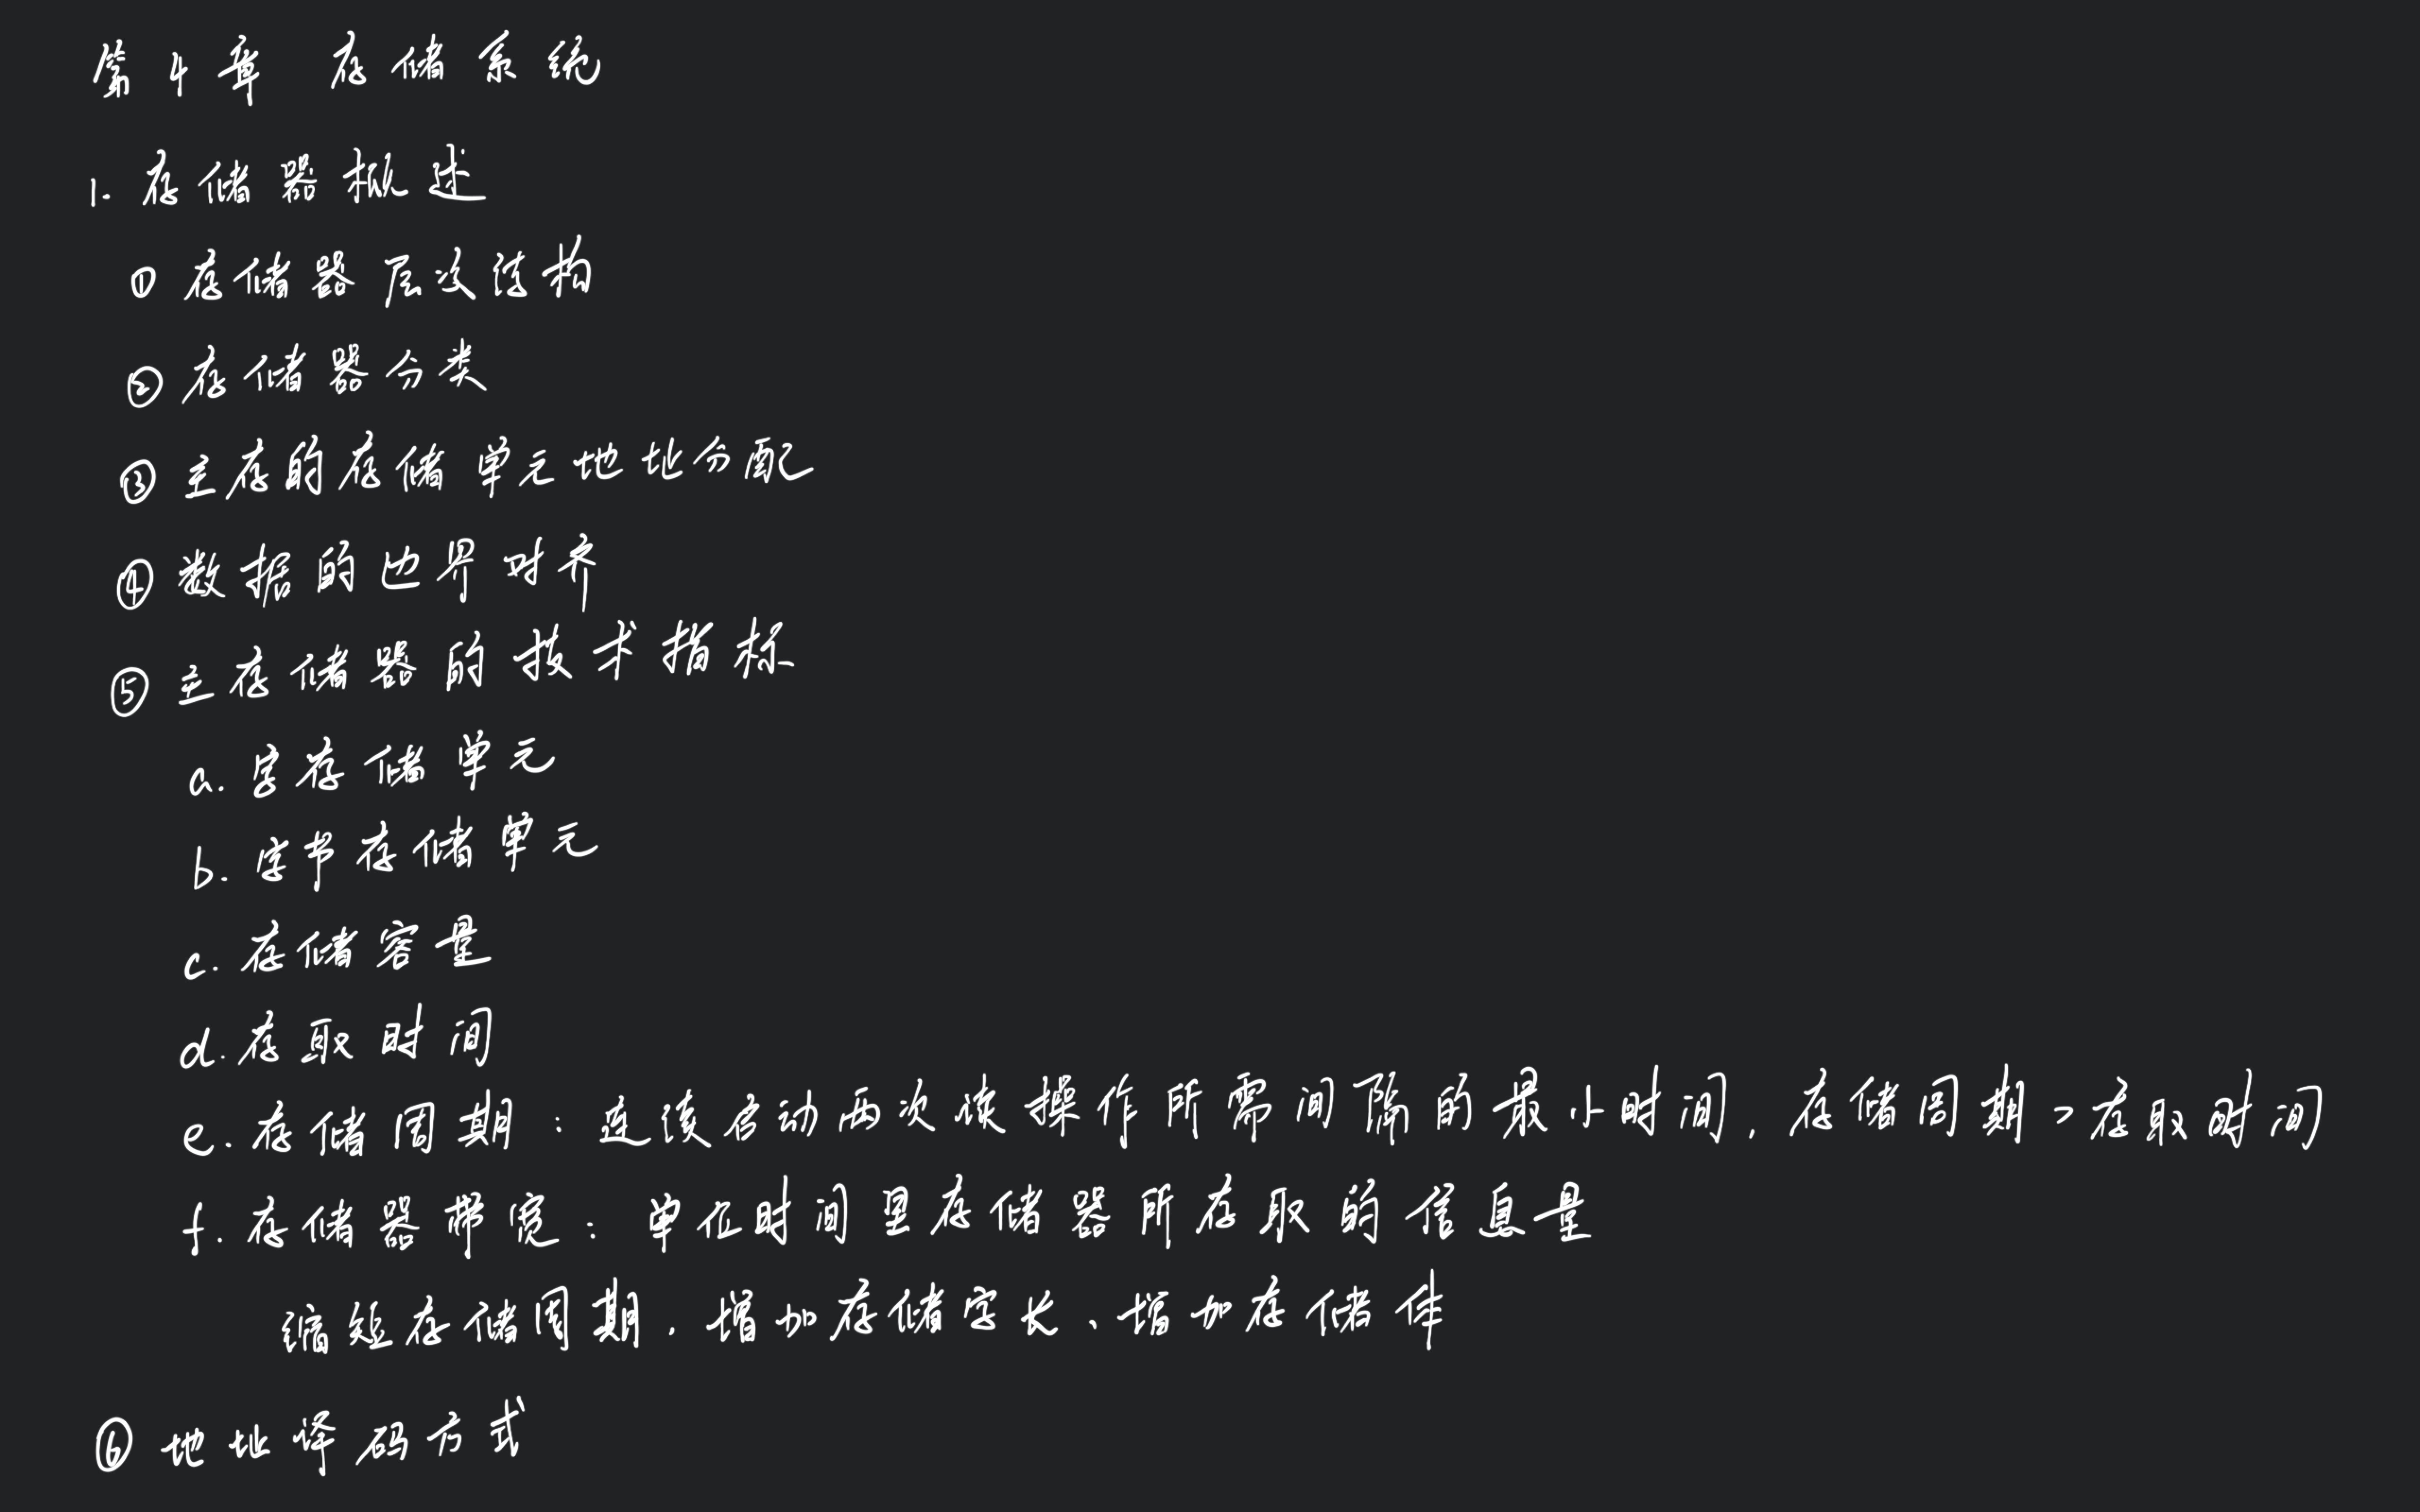 第4章 存储系统
1. 存储器概述
① 存储器层次结构
② 存储器分类
③ 主存的存储单元地址分配
④ 数据的边界对齐
⑤ 主存储器的技术指标
a. 字存储单元
b. 字节存储单元
c. 存储容量
d. 存取时间
e. 存储周期：连续启动两次读操作所需间隔的最小时间，存储周期>存取时间
f. 存储器带宽：单位时间里存储器所存取的信息量
缩短存储周期、增加存储字长、增加存储体
⑥ 地址译码方式